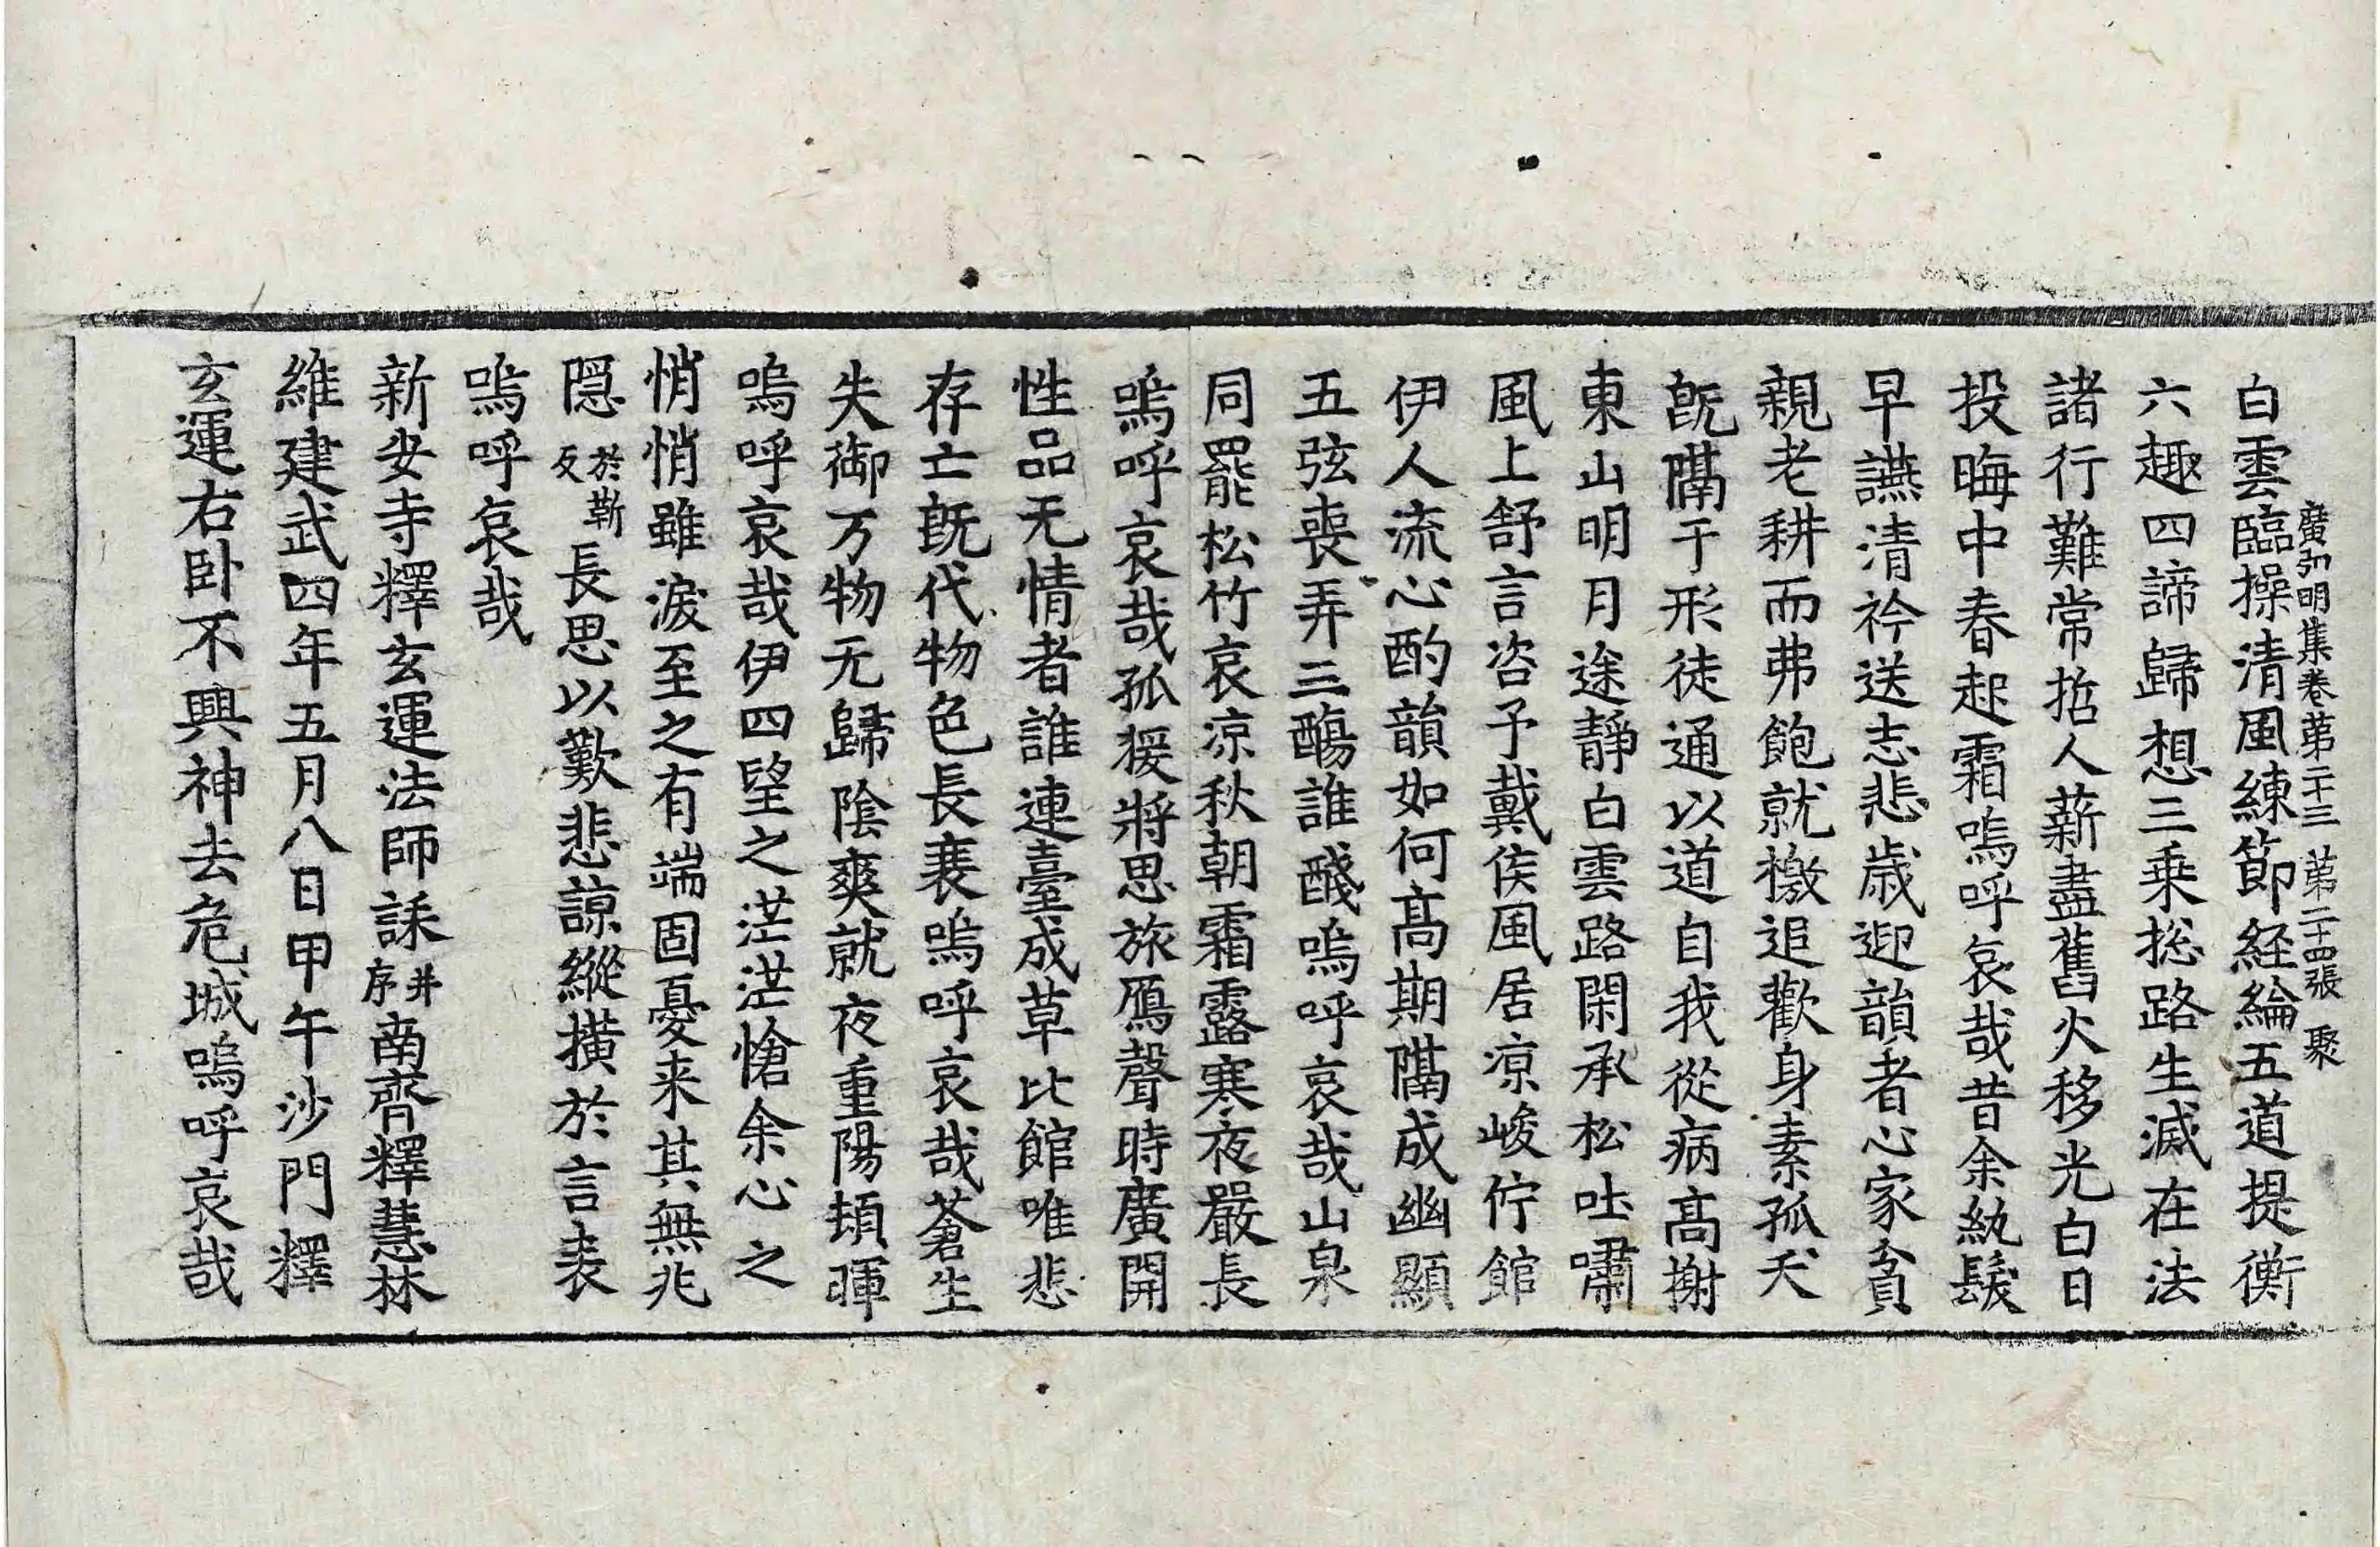 廣弘明集卷第二十三 第二十四張 聚
白雲臨操清風練節経綸五道提衡
六趣四諦歸想三乗捴路生滅在法
諸行難常哲人薪盡舊火移光白日
投晦中春起霜嗚呼哀哉昔余紈髮
早讌清衿送志悲歳迎韻者心家貧
親老耕而弗飽就檄追歡身素孤夭
旣隔于形徒通以道自我從病髙榭
東山明月途靜白雲路閑承松吐嘯
風上舒言咨予戴侯風居凉峻佇館
伊人流心酌韻如何髙期隔成幽顯
五弦喪弄三觴誰醆嗚呼哀哉山泉
同罷松竹哀凉秋朝霜露寒夜嚴長
嗚呼哀哉孤猨將思旅鴈聲時廣開
性品无情者誰連臺成草比館唯悲
存亡旣代物色長衰嗚呼哀哉蒼生
失御万物无歸陰爽就夜重陽頓暉
嗚呼哀哉伊四望之茫茫愴余心之
悄悄雖淚至之有端固憂来其無兆
隠於靳反長思以歎悲諒縱横於言表
嗚呼哀哉
新安寺釋玄運法師誄并序南齊釋慧林
維建武四年五月八日甲午沙門釋
玄運右卧不興神去危城嗚呼哀哉